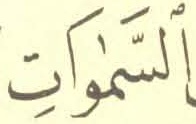 ٱلسَّمٰوَاتِ